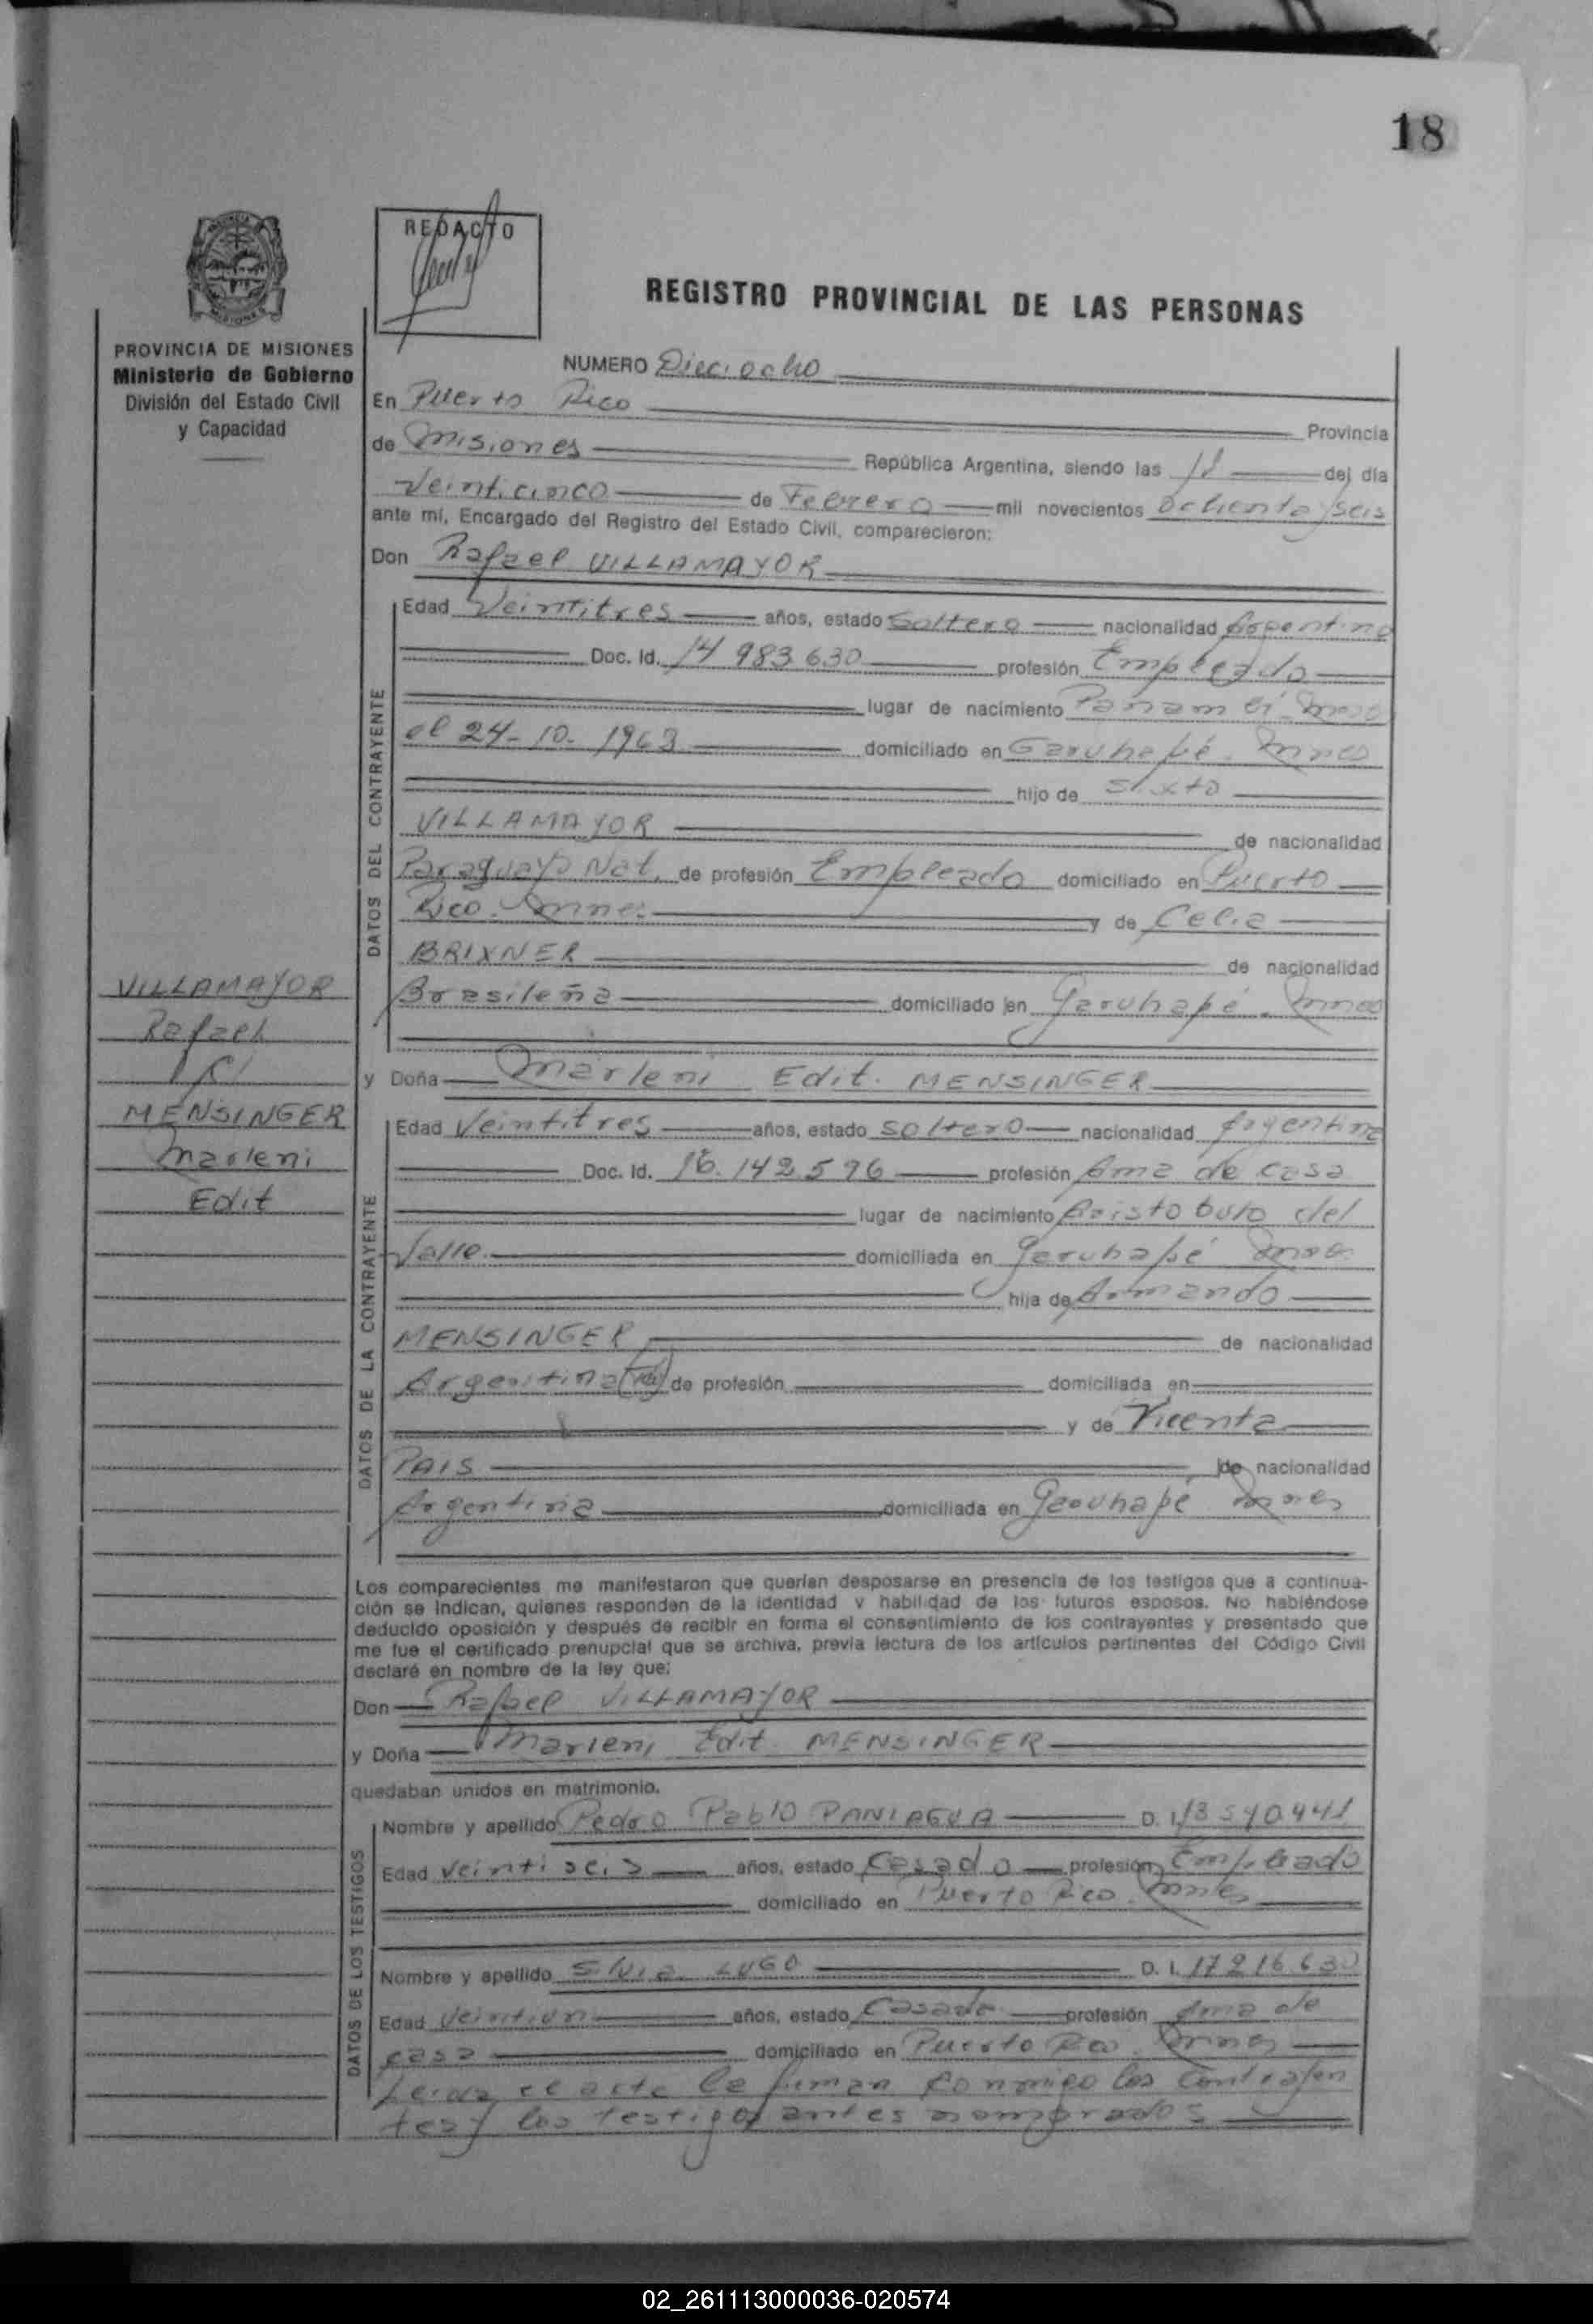 18
REDACTO
REGISTRO PROVINCIAL DE LAS PERSONAS
PROVINCIA DE MISIONES
Ministerio de Gobierno
División del Estado Civil
y Capacidad
NUMERO Dieciocho
En Puerto Rico
Provincia
de Misiones República Argentina, siendo las del día
Veinticinco de Febrero mil novecientos ochenta y seis
ante mí, Encargado del Registro del Estado Civil, comparecieron:
Don Rafael VILLAMAYOR
DATOS DEL CONTRAYENTE
Edad Veintitres años, estado Soltero nacionalidad Argentino
Doc. Id. 14 983.630 profesión Empleado
lugar de nacimiento Panambí Mnes
el 24-10-1963 domiciliado en Garuhapé Mnes
hijo de Sixto
VILLAMAYOR de nacionalidad
Paraguayo Nat. de profesión Empleado domiciliado en Puerto
Rico. Mnes y de Celia
BRIXNER de nacionalidad
Brasileña domiciliado en Garuhapé. Mnes
VILLAMAYOR
Rafael
c/
MENSINGER
Marleni
Edit
y Doña Marleni Edit. MENSINGER
DATOS DE LA CONTRAYENTE
Edad Veintitres años, estado soltero nacionalidad Argentina
Doc. Id. 16.142.596 profesión Ama de casa
lugar de nacimiento Aristobulo del
Valle. domiciliada en Garuhapé Mnes
hija de Armando
MENSINGER de nacionalidad
Argentina de profesión domiciliada en
y de Vicenta
PAIS de nacionalidad
Argentina domiciliada en Garuhapé Mnes
Los comparecientes me manifestaron que querían desposarse en presencia de los testigos que a continua-
ción se indican, quienes responden de la identidad y habilidad de los futuros esposos. No habiéndose
deducido oposición y después de recibir en forma el consentimiento de los contrayentes y presentado que
me fue el certificado prenupcial que se archiva, previa lectura de los artículos pertinentes del Código Civil
declaré en nombre de la ley que:
Don Rafael VILLAMAYOR
y Doña Marleni Edit MENSINGER
quedaban unidos en matrimonio.
DATOS DE LOS TESTIGOS
Nombre y apellido Pedro Pablo PANIAGUA D. I. 13 540.441
Edad Veintiseis años, estado Casado profesión Empleado
domiciliado en Puerto Rico. Mnes
Nombre y apellido Silvia LUGO D. I. 17 216.630
Edad Veintiun años, estado Casada profesión Ama de
casa domiciliado en Puerto Rico. Mnes
Leida el acta la firman conmigo los contrayen
tes y los testigos antes nombrados
02_261113000036-020574